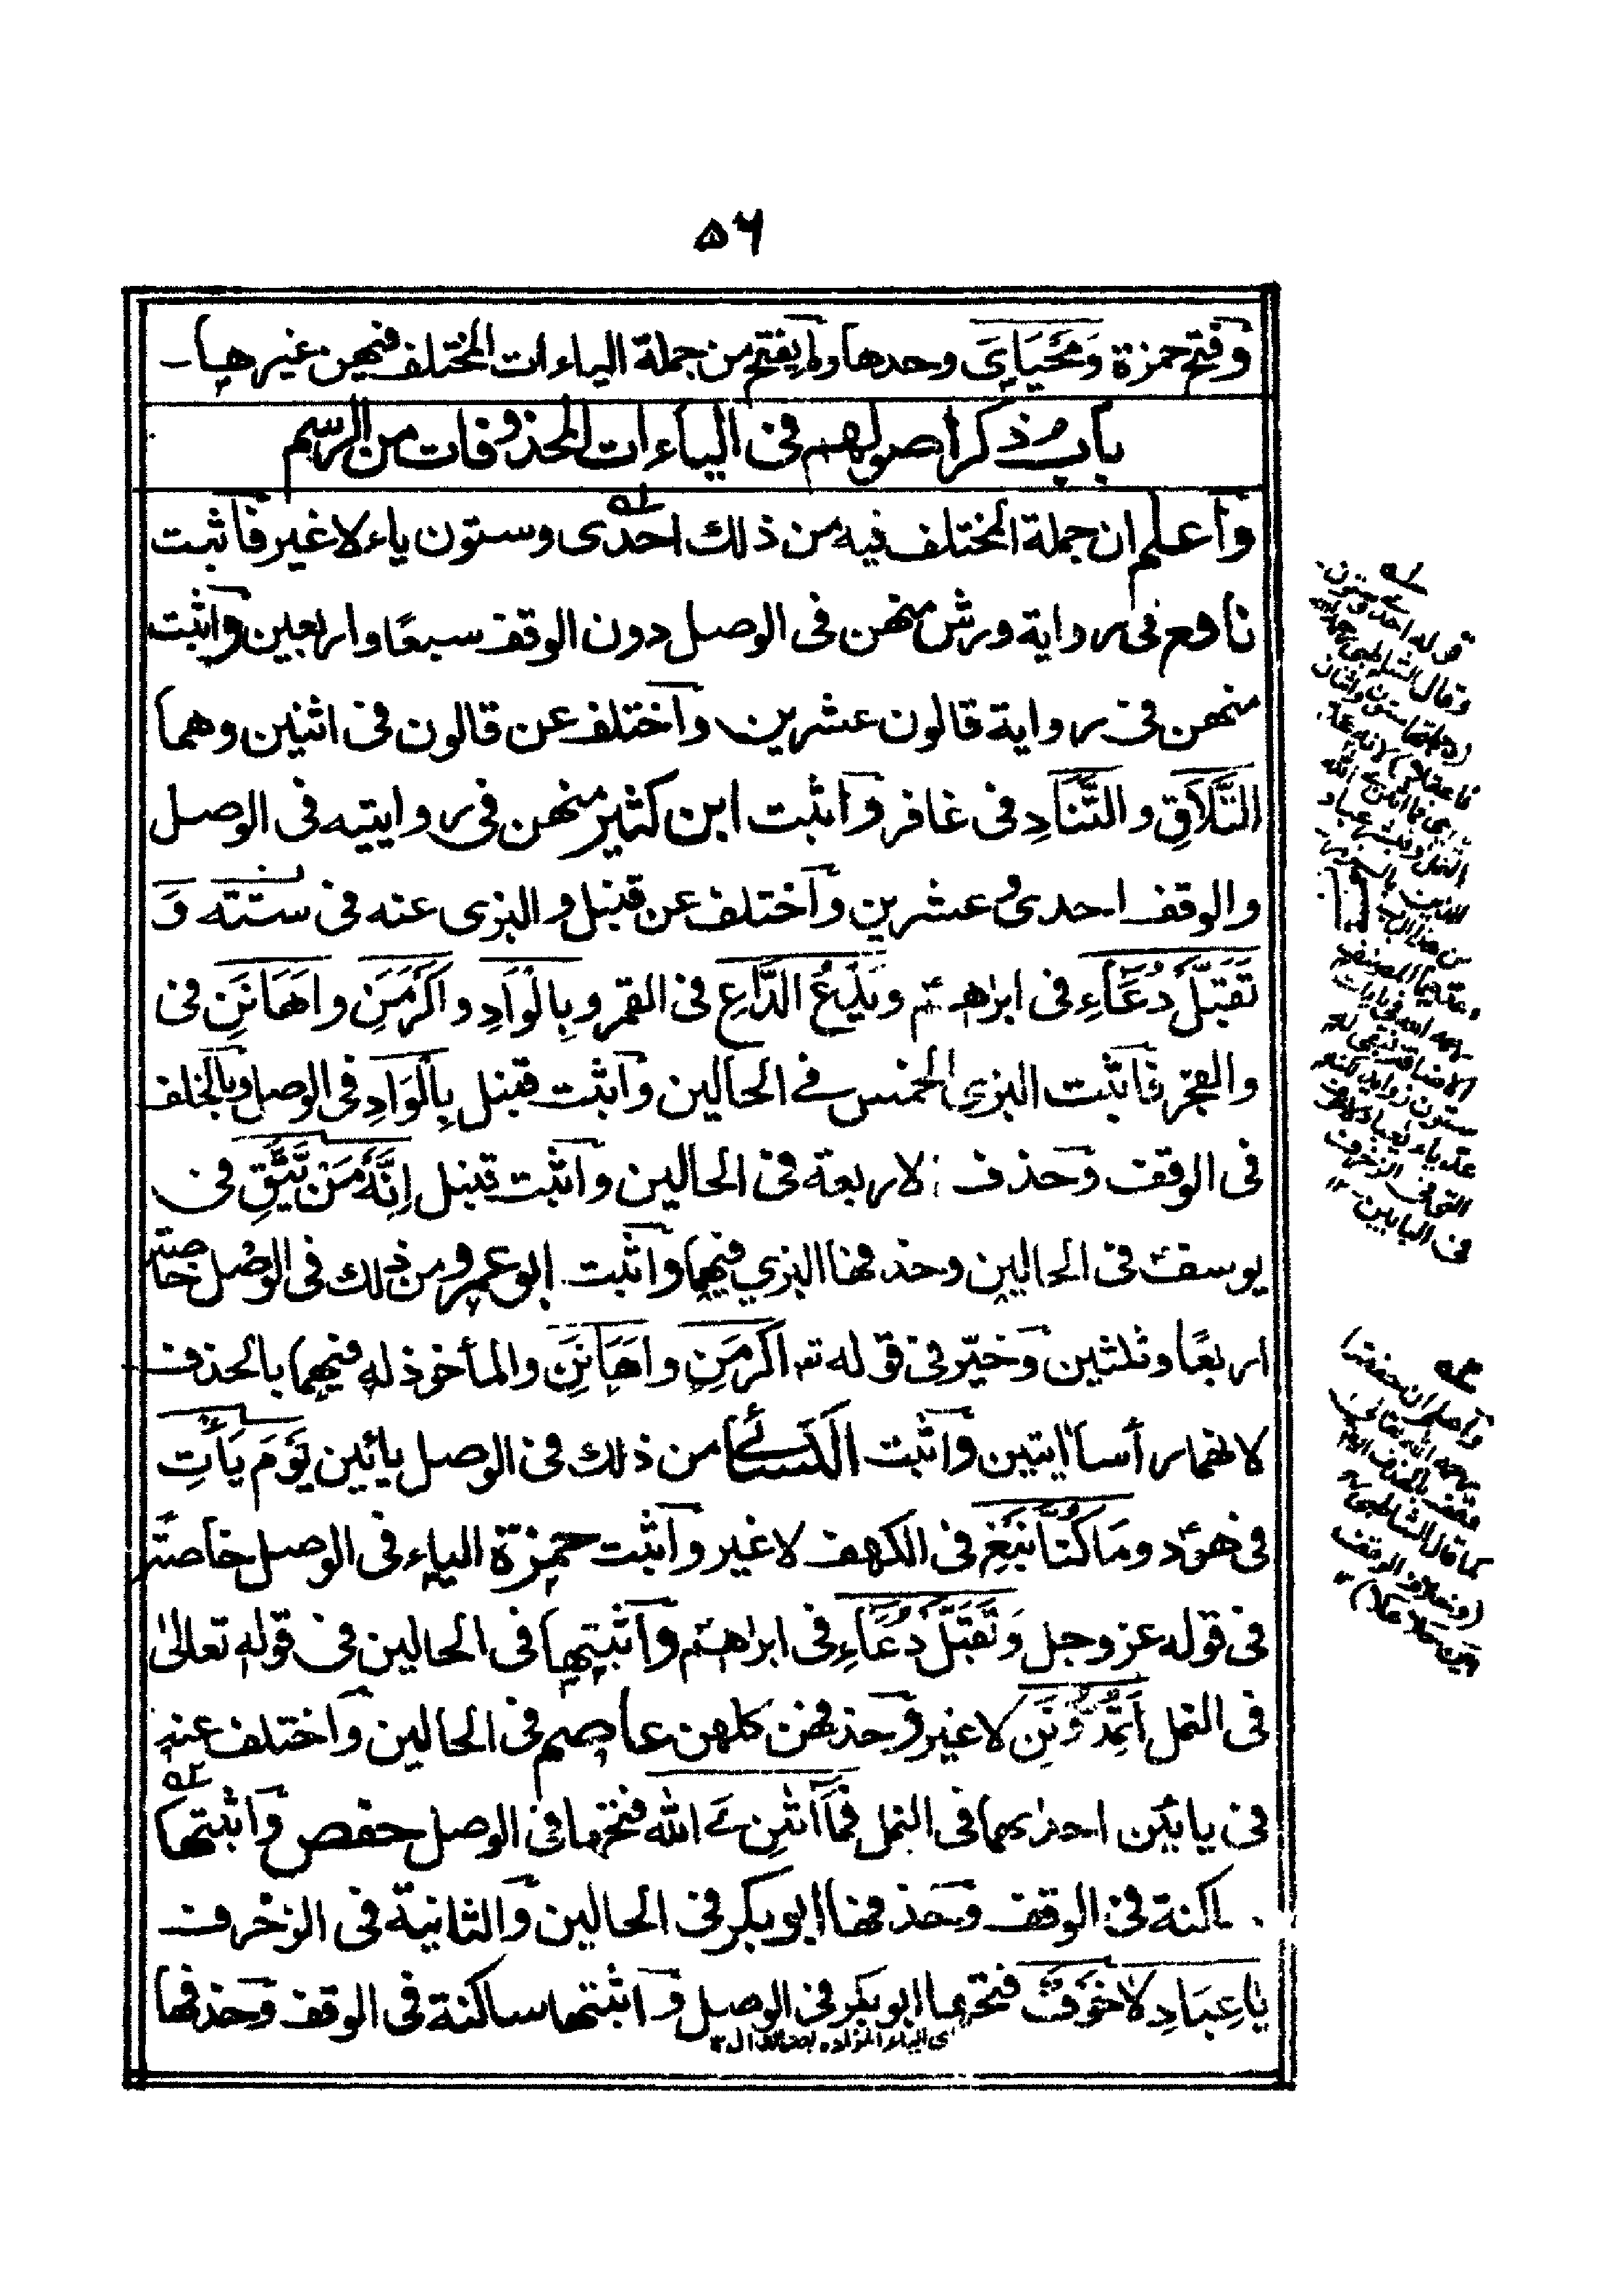 ۵۶
وفتح حمزة وَمَحْيَايَ وحدها ولم يفتح من جملة الياءات المختلف فيهن غيرها۔
باب ذكر اصولهم فى الياءات المحذوفات من الرسم
واعلم ان جملة المختلف فيه من ذلك احدى وستون ياء لا غير فاثبت
نافع فى رواية ورش منهن فى الوصل دون الوقف سبعًا واربعين واثبت
منهن فى رواية قالون عشرين واختلف عن قالون فى اثنين وهما
التَّلَاقِ والتَّنَادِ فى غافر واثبت ابن كثير منهن فى روايتيه فى الوصل
والوقف احدى وعشرين واختلف عن قنبل والبزى عنه فى ستته وَ
تَقَبَّلْ دُعَاءِ فى ابرٰهيم ويَدْعُ الدَّاعِ فى القمر وبِالْوَادِ واَكْرَمَنِ واَهَانَنِ فى
والفجر فاثبت البزى الخمس فى الحالين واثبت قنبل بِالْوَادِ فى الوصل وبالخلف
فى الوقف وحذف الاربعة فى الحالين واثبت قنبل اِنَّهٗ مَنْ يَّتَّقِ فى
يوسف فى الحالين وحذفها البزي فيهما واثبت ابو عمرو من ذلك فى الوصل خاصة
اربعًا وثلثين وخيّر فى قوله تعـ اَكْرَمَنِ واَهَانَنِ والمأخوذ له فيهما بالحذف
لانهما رأسا ايتين واثبت الكسائى من ذلك فى الوصل يائين يَوْمَ يَأْتِ
فى هود ومَا كُنَّا نَبْغِ فى الكهف لا غير واثبت حمزة الياء فى الوصل خاصة
فى قوله عز وجل وَتَقَبَّلْ دُعَاءِ فى ابرٰهيم واثبتها فى الحالين فى قوله تعالىٰ
فى النمل اَتُمِدُّوْنَنِ لا غير وحذفهن كلهن عاصم فى الحالين واختلف عنه
فى يائين احدٰىهما فى النمل فَمَا اٰتٰنِۦَ الله فتحها فى الوصل حفص واثبتها
ساكنة فى الوقف وحذفها ابو بكر فى الحالين والثانية فى الزخرف
يٰعِبَادِ لَا خَوْفٌ فتحها ابو بكر فى الوصل واثبتها ساكنة فى الوقف وحذفها
قوله احدى وستون
وقال الشاطبى
واصل ان حفصا
رحمه الله تعالى
وقف بالحذف
كما قال الشاطبى